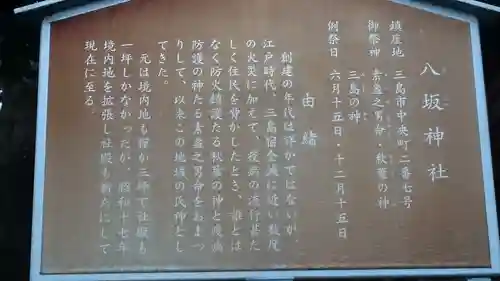 八坂神社
鎮座地 三島市中央町二番七号
御祭神 素盞之男命・秋葉の神
三島の神
例祭日 六月十五日・十二月十五日
由緒
創建の年代は詳かではないが、
江戸時代、三島宿全滅に近い数度
の火災に加えて、疫病の流行甚た
しく住民を脅かしたとき、誰とは
なく防火鎮護たる秋葉の神と疫病
防護の神たる素盞之男命をおまつ
りして、以来この地域の氏神とし
てきた。
元は境内地も僅か三坪で社殿も
一坪しかなかったが、昭和十七年
境内地を拡張し社殿も新たにして
現在に至る。